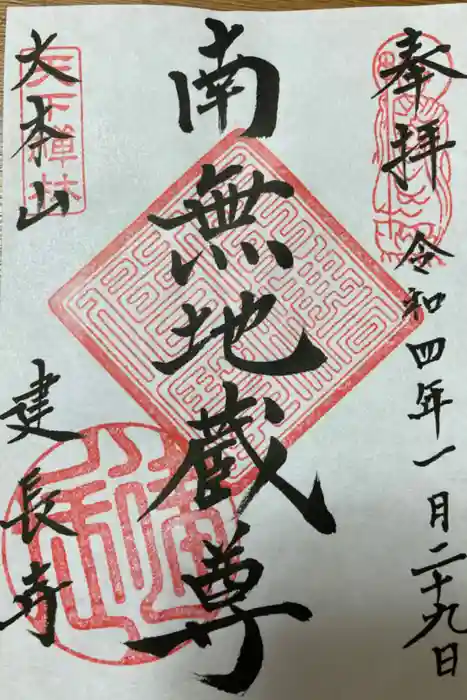 奉拝
令和四年一月二十九日
南無地蔵尊
天下禅林
大本山
建長寺